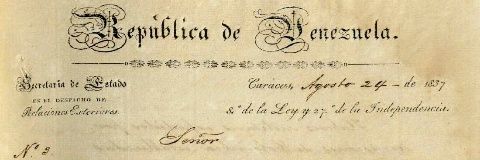 República de Venezuela.
Secretaría de Estado
EN EL DESPACHO DE
Relaciones Exteriores.
Caracas, Agosto 24 - de 1837
8.º de la Ley y 27.º de la Independencia.
Señor
N.º 3